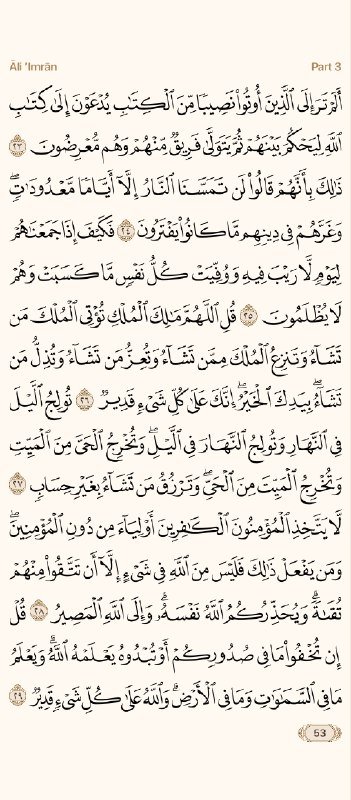 Āli 'Imrān Part 3
أَلَمۡ تَرَ إِلَى ٱلَّذِينَ أُوتُواْ نَصِيبٗا مِّنَ ٱلۡكِتَٰبِ يُدۡعَوۡنَ إِلَىٰ كِتَٰبِ
ٱللَّهِ لِيَحۡكُمَ بَيۡنَهُمۡ ثُمَّ يَتَوَلَّىٰ فَرِيقٞ مِّنۡهُمۡ وَهُم مُّعۡرِضُونَ ٢٣
ذَٰلِكَ بِأَنَّهُمۡ قَالُواْ لَن تَمَسَّنَا ٱلنَّارُ إِلَّآ أَيَّامٗا مَّعۡدُودَٰتٖۖ
وَغَرَّهُمۡ فِي دِينِهِم مَّا كَانُواْ يَفۡتَرُونَ ٢٤ فَكَيۡفَ إِذَا جَمَعۡنَٰهُمۡ
لِيَوۡمٖ لَّا رَيۡبَ فِيهِ وَوُفِّيَتۡ كُلُّ نَفۡسٖ مَّا كَسَبَتۡ وَهُمۡ
لَا يُظۡلَمُونَ ٢٥ قُلِ ٱللَّهُمَّ مَٰلِكَ ٱلۡمُلۡكِ تُؤۡتِي ٱلۡمُلۡكَ مَن
تَشَآءُ وَتَنزِعُ ٱلۡمُلۡكَ مِمَّن تَشَآءُ وَتُعِزُّ مَن تَشَآءُ وَتُذِلُّ مَن
تَشَآءُۖ بِيَدِكَ ٱلۡخَيۡرُۖ إِنَّكَ عَلَىٰ كُلِّ شَيۡءٖ قَدِيرٞ ٢٦ تُولِجُ ٱلَّيۡلَ
فِي ٱلنَّهَارِ وَتُولِجُ ٱلنَّهَارَ فِي ٱلَّيۡلِۖ وَتُخۡرِجُ ٱلۡحَيَّ مِنَ ٱلۡمَيِّتِ
وَتُخۡرِجُ ٱلۡمَيِّتَ مِنَ ٱلۡحَيِّۖ وَتَرۡزُقُ مَن تَشَآءُ بِغَيۡرِ حِسَابٖ ٢٧
لَّا يَتَّخِذِ ٱلۡمُؤۡمِنُونَ ٱلۡكَٰفِرِينَ أَوۡلِيَآءَ مِن دُونِ ٱلۡمُؤۡمِنِينَۖ
وَمَن يَفۡعَلۡ ذَٰلِكَ فَلَيۡسَ مِنَ ٱللَّهِ فِي شَيۡءٍ إِلَّآ أَن تَتَّقُواْ مِنۡهُمۡ
تُقَىٰةٗۗ وَيُحَذِّرُكُمُ ٱللَّهُ نَفۡسَهُۥۗ وَإِلَى ٱللَّهِ ٱلۡمَصِيرُ ٢٨ قُلۡ
إِن تُخۡفُواْ مَا فِي صُدُورِكُمۡ أَوۡ تُبۡدُوهُ يَعۡلَمۡهُ ٱللَّهُۗ وَيَعۡلَمُ
مَا فِي ٱلسَّمَٰوَٰتِ وَمَا فِي ٱلۡأَرۡضِۗ وَٱللَّهُ عَلَىٰ كُلِّ شَيۡءٖ قَدِيرٞ ٢٩
53